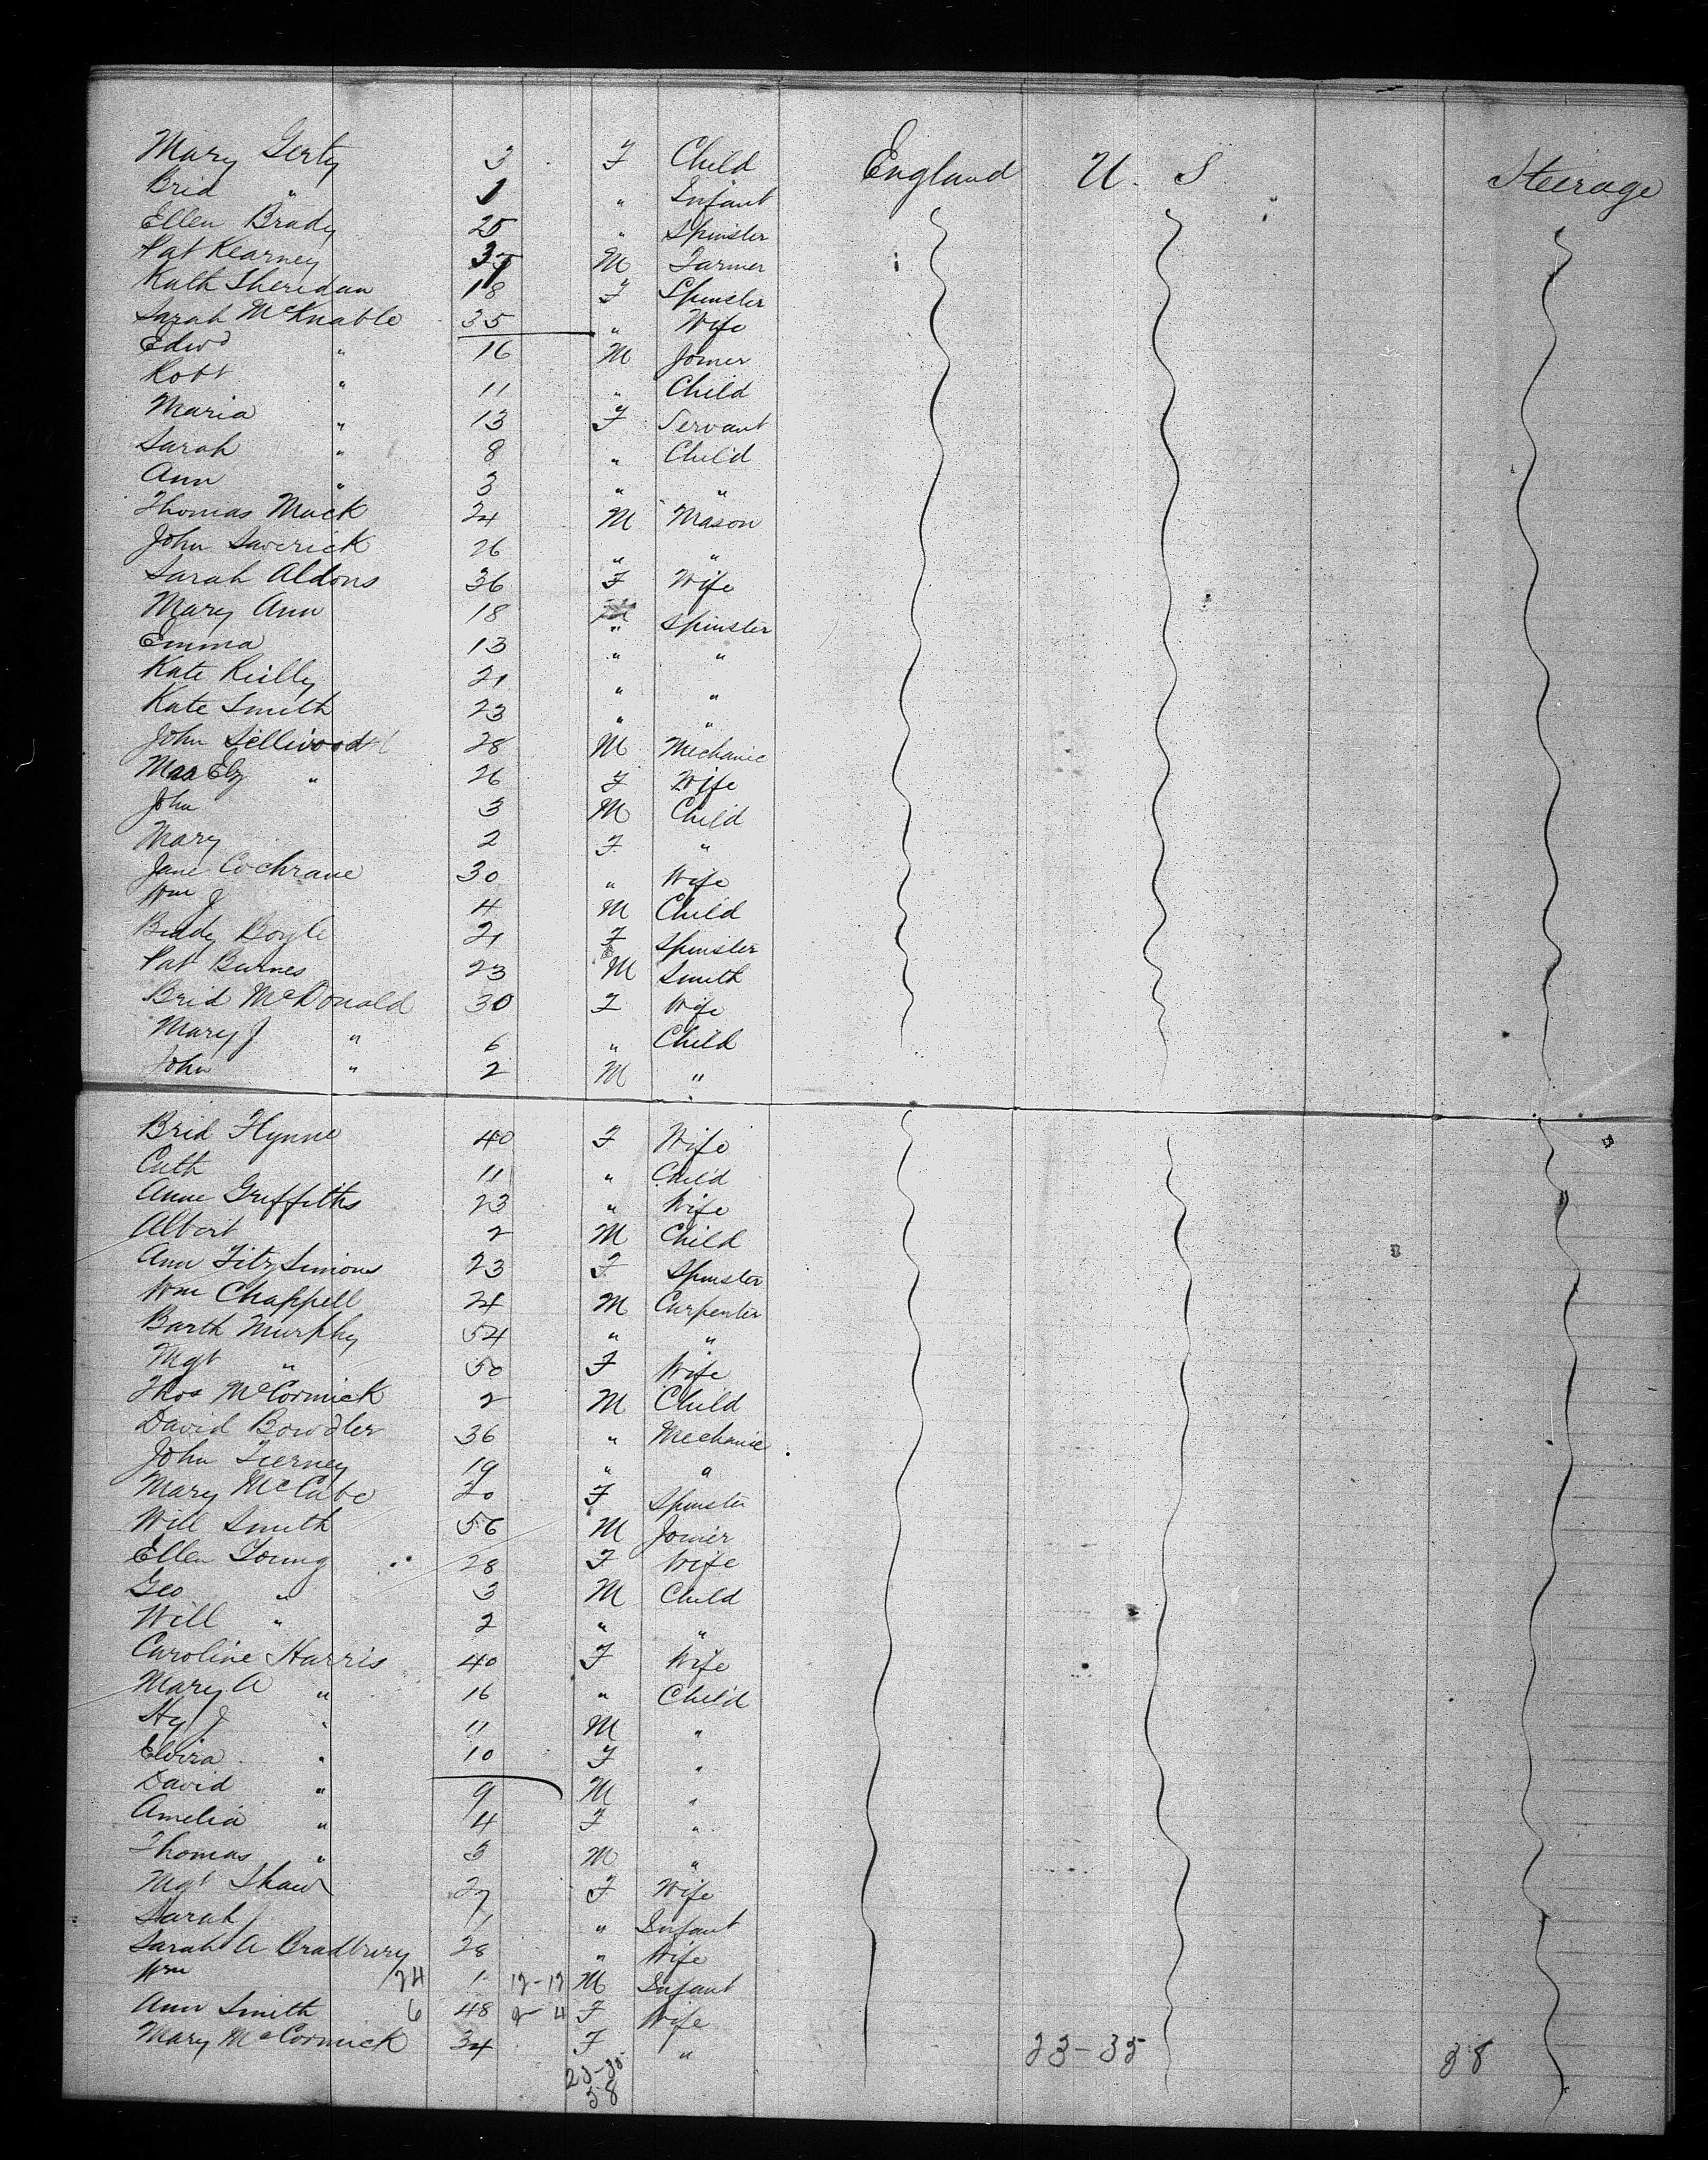 Mary Gerty 3 F Child England U. S Steerage
Brid " 1 " Infant
Ellen Brady 25 " Spinster
Pat Kearney M Farmer
Kath Sheridan 18 F Spinster
Sarah McKnable 35 " Wife
Edwd " 16 M Joiner
Robt " 11 " Child
Maria " 13 F Servant
Sarah " 8 " Child
Ann " 3 " "
Thomas Mack 24 M Mason
John Laverick 26 " "
Sarah Aldons 36 F Wife
Mary Ann 18 " Spinster
Emma 13 " "
Kate Reilly 21 " "
Kate Smith 23 " "
John Selliwood 28 M Mechanic
Elz " 26 F Wife
John 3 M Child
Mary 2 F "
Jane Cochrane 30 " Wife
Wm J 4 M Child
Biddy Boyle 21 F Spinster
Pat Burnes 23 M Smith
Brid McDonald 30 F Wife
Mary J " 6 " Child
John " 2 M "
Brid Flynne 40 F Wife
Cath 11 " Child
Anne Griffiths 23 " Wife
Albert 2 M Child
Ann FitzSimons 23 F Spinster
Wm Chappell 24 M Carpenter
Barth Murphy 54 " "
Mgt " 50 F Wife
Thos McCormick 2 M Child
David Bowdler 36 " Mechanic
John Tierney 19 " "
Mary McCabe 20 F Spinster
Will Smith 56 M Joiner
Ellen Young 28 F Wife
Geo " 3 M Child
Will " 2 " "
Caroline Harris 40 F Wife
Mary A " 16 " Child
Hy J " 11 M "
Elvira " 10 F "
David " 9 M "
Amelia " 4 F "
Thomas " 3 M "
Mgt Shaw 27 F Wife
Sarah J 1 " Infant
Sarah A Bradbury 28 " Wife
Wm 24 1 12-12 M Infant
Ann Smith 6 48 2 4 F Wife
Mary McCormick 34 F " 23-35 38
23-35
58